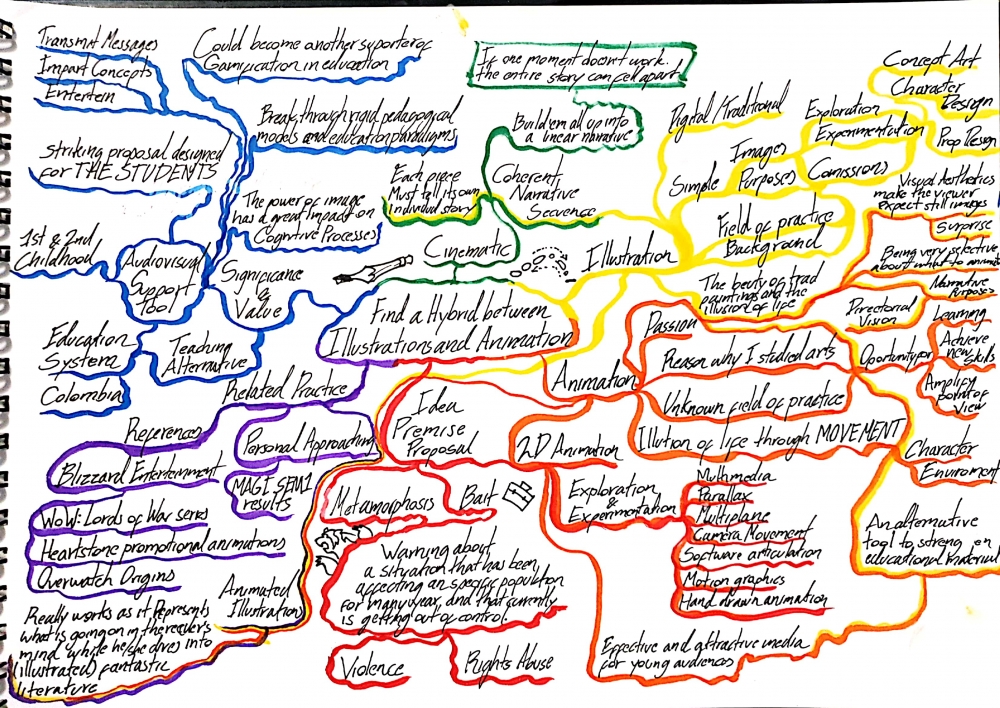 Transmit Messages
Impart Concepts
Entertein
Could become another suporter of
Gamification in education
If one moment doesn't work.
the entire story can fell apart
Concept Art
Character
Design
Prop Design
Break through rigid pedagogical
models and education paradigms
Build em all up into
a linear narrative
Digital/Traditional
Exploration
Experimentation
Striking proposal designed
for THE STUDENTS
Each piece
Must tell its own
Individual story
Coherent
Narrative
Secuence
Images
Simple
Purposes
Comissions
Visual Aesthetics
make the viewer
expect still images
Surprise
The power of image
has a great impact on
Cognitive Processes
Field of practice
Background
1st & 2nd
Childhood
Audiovisual
Support
Tool
Significane
&
Value
Cinematic
Illustration
Being very selective
about what to animate
Narrative
Purposes
The beuty of trad
paintings and the
illusion of life
Find a Hybrid between
Illustrations and Animation
Passion
Directorial
Vision
Learning
Education
System
Teaching
Alternative
Reason why I studied arts
Oportunity for
Achieve
new
Skills
Colombia
Related Practice
Animation
Unknown field of practice
Amplify
point of
View
Idea
Premise
Proposal
References
Personal Approaching
2D Animation
Illution of life through MOVEMENT
Character
Enviroment
Blizzard Entertenment
MAGI SEM1
results
Metamorphosis
Bait
Exploration
&
Experimentation
Multimedia
Parallax
Multiplane
Camera Movement
Software articulation
Motion graphics
Hand drawn animation
WoW: Lords of War series
Heartstone promotional animations
Overwatch Origins
An alternative
tool to streng en
educational material
Warning about
a situation that has been
affecting an specific population
for many year, and that currently
is getting out of control.
Animated
Illustration
Really works as it Represents
what is going on in the
mind while he/she dives into
(illustrated) fantastic
literature
Violence
Rights Abuse
Effective and attractive media
for young audiences